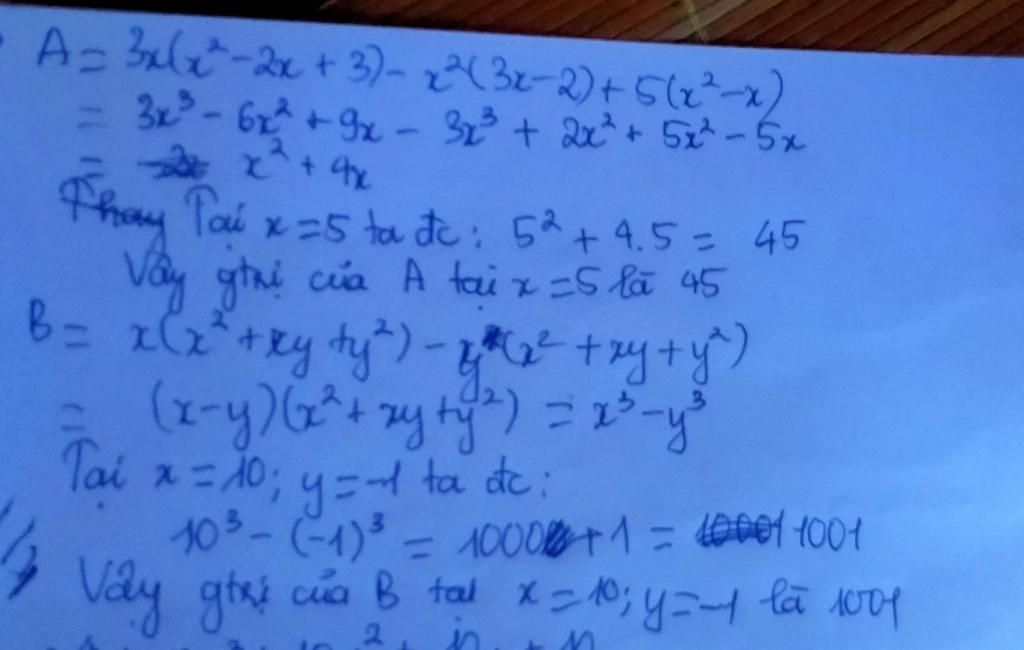 A = 3x(x² - 2x + 3) - x²(3x - 2) + 5(x² - x)
= 3x³ - 6x² + 9x - 3x³ + 2x² + 5x² - 5x
= x² + 4x
Thay Tại x = 5 ta đc: 5² + 4.5 = 45
Vậy gtrị của A tại x = 5 là 45
B = x(x² + xy + y²) - y(x² + xy + y²)
= (x - y)(x² + xy + y²) = x³ - y³
Tại x = 10; y = -1 ta đc:
10³ - (-1)³ = 1000 + 1 = 1001
Vậy gtrị của B tại x = 10; y = -1 là 1001